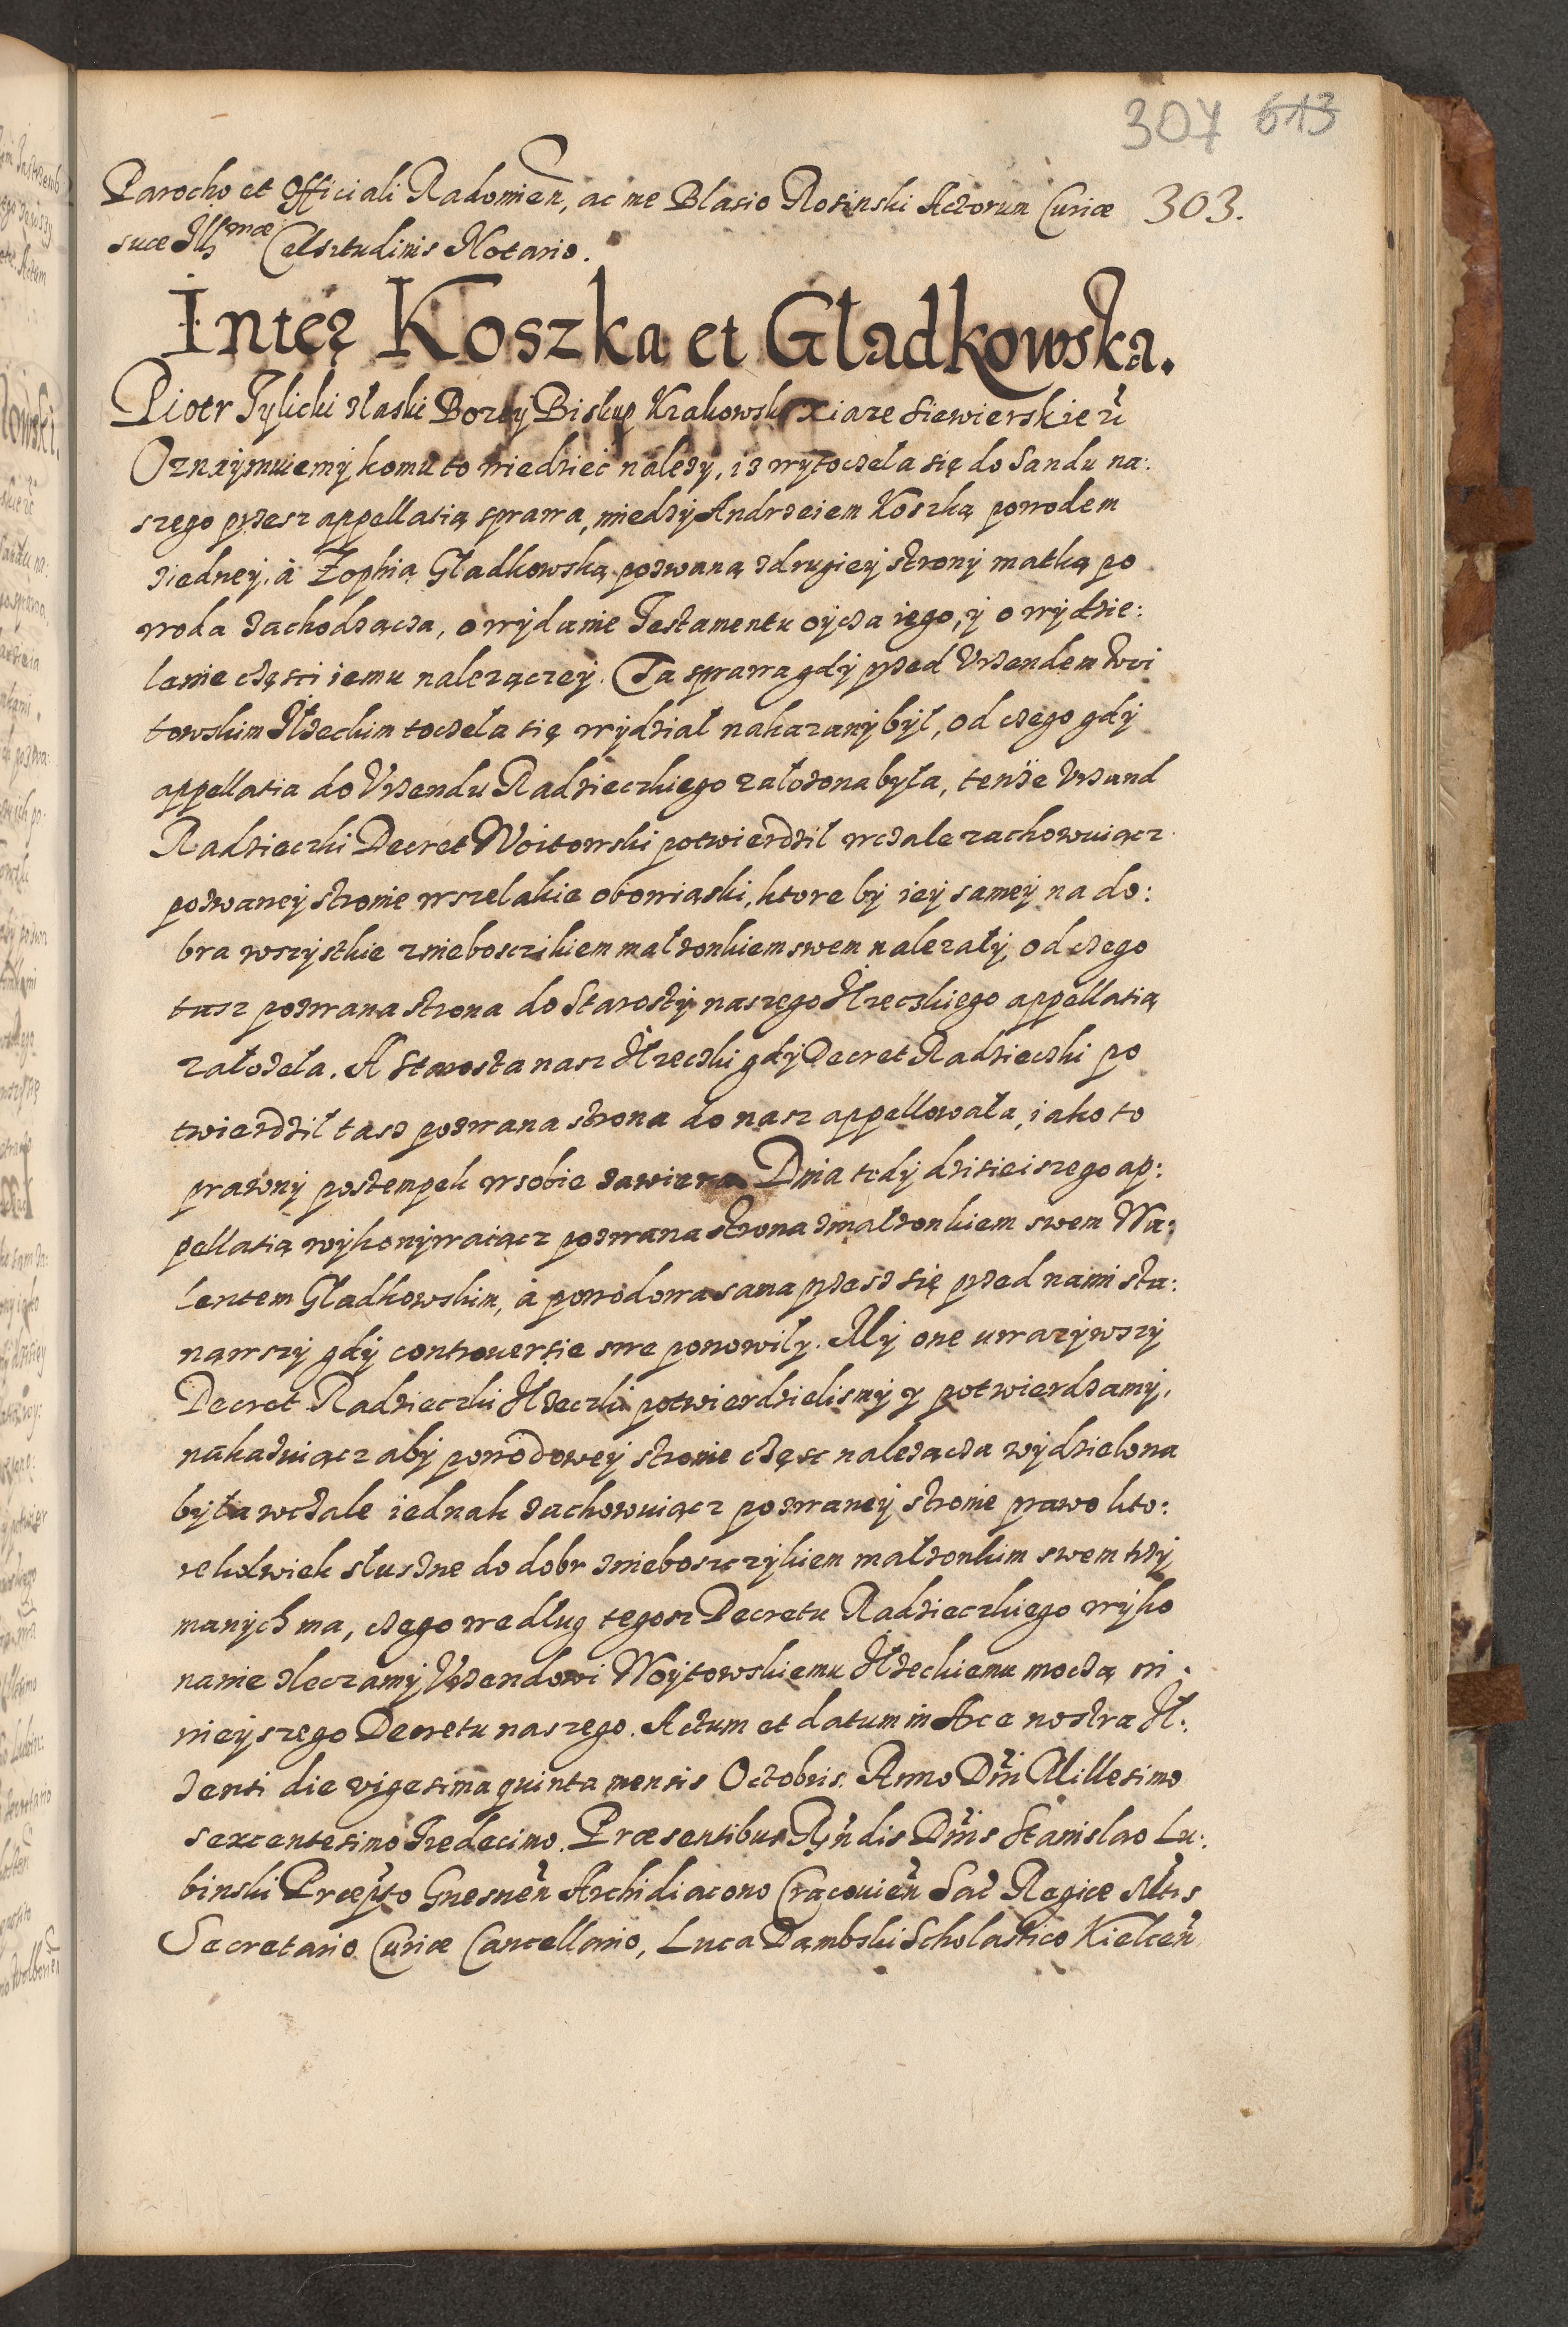 307 613
Parocho et Officiali Radomien̄, ac me Blasio Rosinski Actorum Curiæ 303.
suæ Illmæ Celsitudinis Notario.
Inter Koszka et Gladkowska.
Piotr Tylicki z łaski Bozey Biskup Krakowsk Xiaze Siewierskie ɾc
Oznaÿmuiemÿ komu to wiedzieć nalezy, iz wytoczeła się do Sandu na:
szego przesz appellatią sprawa, miedzÿ Andrzeiem Koszką powodem
ziedney, à Zophią Gładkowską pozwaną zdrugieÿ stronÿ matką po
woda zachodząca, o wÿdanie Testamentu oÿcza iego, ÿ o wÿdzie:
lenie częsci iemu nalezączeÿ. Ta sprawa gdÿ przed Vrzendem Woi
towskim Iłzeckim toczeła się wÿdział nakazanÿ bÿł, od czego gdÿ
appellatia do Vrzendu Radzieczkiego załozona była, tenże Vrzand
Radzieczki Decret Woitowski potwierdził wczale zachowuiącz
pozwaneÿ stronie wszelakie obowiąski, ktore bÿ ieÿ sameÿ na do:
bra wszÿstkie z niebosczikiem małzonkiem swem nalezałÿ, od czego
tasz pozwana strona do Starostÿ naszego Iłzeczkiego appellatią
załozeła. A Starosta nasz Iłzeczki gdÿ Decret Radziecki po
twierdził taz pozwana strona do nasz appellowała, iako to
prawnÿ postempek wsobie zawiera Dnia tedÿ dzisieiszego ap:
pellatią wÿkonÿwaiącz pozwana strona z małzonkiem swem Wa:
lentem Gładkowskim, à powodowa sama przesz się przed nami sta:
nąwszÿ gdÿ controuersie swe ponowiłÿ. Mÿ one uwazÿwszÿ
Decret Radzieczki Iłzeczki potwierdzielismÿ ÿ potwierdzamÿ,
nakazuiącz abÿ powodoweÿ stronie częsc nalezącza wÿdzielona
bÿła wczale iednak zachowuiącz pozwaneÿ stronie prawo kto:
rekolwiek słuszne do dobr z nieboszczÿkiem małzonkim swem trzÿ
manÿch ma, czego według tegosz Decretu Radzieczkiego wÿko
nanie zleczamÿ Vrzendowi Woÿtowskiemu Iłzeckiemu moczą ni:
nieÿszego Decretu naszego. Actum et datum in Arce nostra Ił:
zensi die vigesima quinta mensis Octobris. Anno Dn̄i Millesimo
sexcentesimo Tredecimo. Præsentibus Rn̄dis Dn̄is Stanislao Lu:
binski Præpto Gnesnen̄ Archidiacono Cracouien̄ Sac̄ Regiæ Mtis
Secretario Curiæ Cancellario, Luca Dąmbski Scholastico Kielcen̄